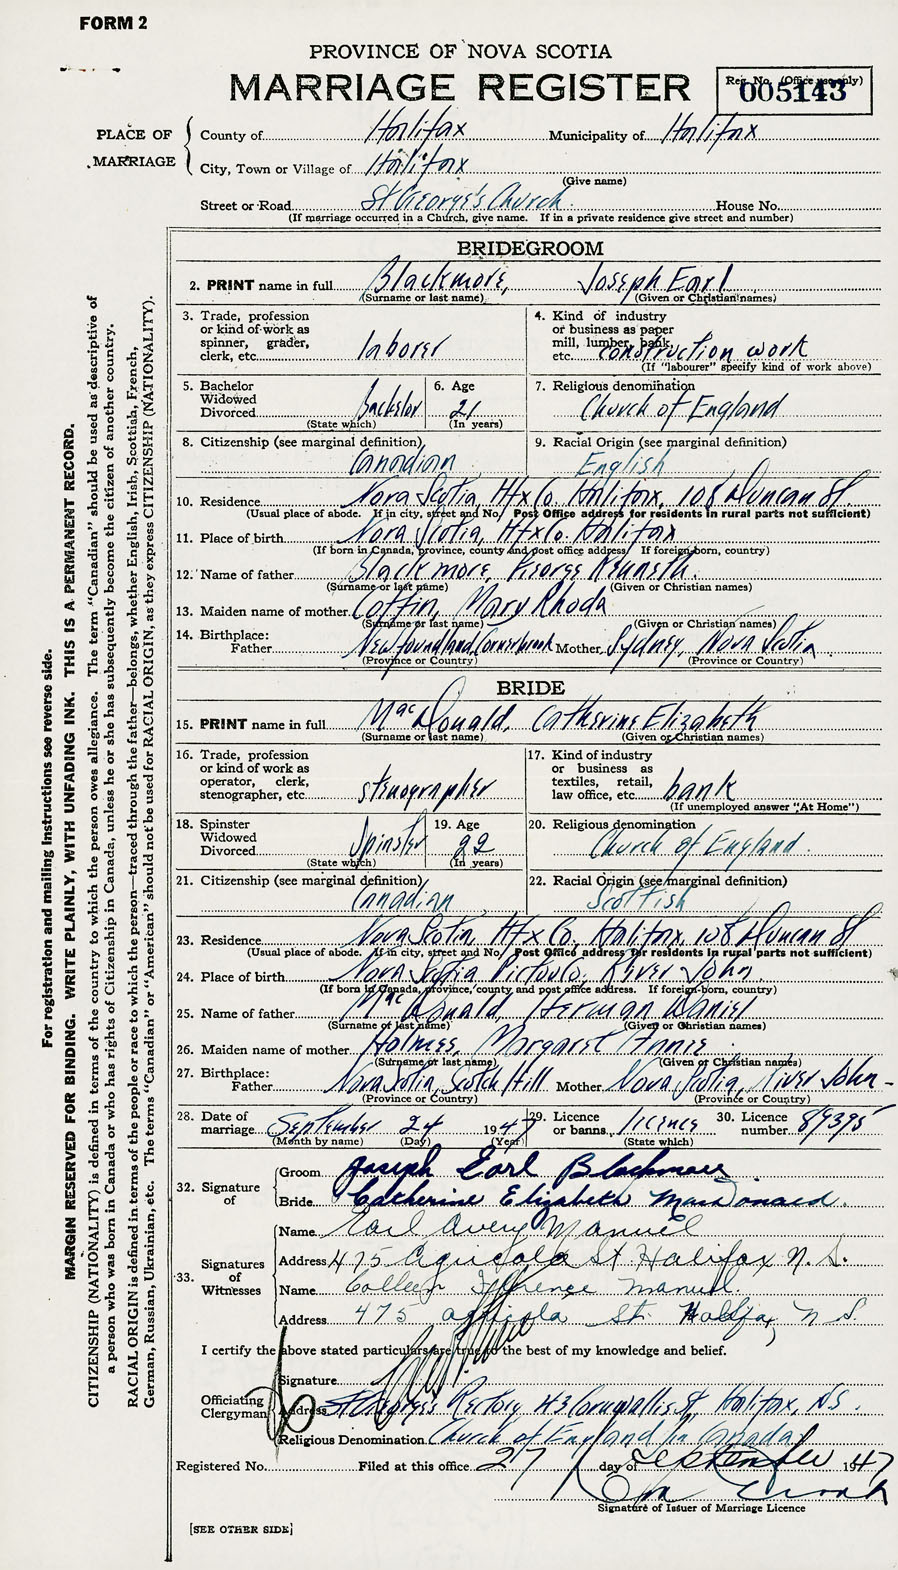 FORM 2
PROVINCE OF NOVA SCOTIA
MARRIAGE REGISTER
Reg. No. (Office use only)
005143
PLACE OF MARRIAGE
County of Halifax Municipality of Halifax
City, Town or Village of Halifax
(Give name)
Street or Road St George's Church House No.
(If marriage occurred in a Church, give name. If in a private residence give street and number)
BRIDEGROOM
2. PRINT name in full Blackmore, Joseph Earl
(Surname or last name) (Given or Christian names)
3. Trade, profession or kind of work as spinner, grader, clerk, etc. laborer
4. Kind of industry or business as paper mill, lumber, bank, etc. construction work
(If "labourer" specify kind of work above)
5. Bachelor Widowed Divorced Bachelor
(State which)
6. Age 21
(In years)
7. Religious denomination
Church of England
8. Citizenship (see marginal definition)
Canadian
9. Racial Origin (see marginal definition)
English
10. Residence Nova Scotia, Hfx Co. Halifax, 108 Duncan St.
(Usual place of abode. If in city, street and No. Post Office address for residents in rural parts not sufficient)
11. Place of birth Nova Scotia, Hfx Co. Halifax
(If born in Canada, province, county and post office address. If foreign-born, country)
12. Name of father Blackmore, George Kenneth.
(Surname or last name) (Given or Christian names)
13. Maiden name of mother Coffin, Mary Rhoda
(Surname or last name) (Given or Christian names)
14. Birthplace:
Father Newfoundland, Cornerbrook Mother Sydney, Nova Scotia.
(Province or Country) (Province or Country)
BRIDE
15. PRINT name in full MacDonald, Catherine Elizabeth
(Surname or last name) (Given or Christian names)
16. Trade, profession or kind of work as operator, clerk, stenographer, etc. stenographer
17. Kind of industry or business as textiles, retail, law office, etc. bank
(If unemployed answer "At Home")
18. Spinster Widowed Divorced Spinster
(State which)
19. Age 22
(In years)
20. Religious denomination
Church of England.
21. Citizenship (see marginal definition)
Canadian
22. Racial Origin (see marginal definition)
Scottish
23. Residence Nova Scotia, Hfx Co, Halifax, 108 Duncan St
(Usual place of abode. If in city, street and No. Post Office address for residents in rural parts not sufficient)
24. Place of birth Nova Scotia Pictou Co, River John.
(If born in Canada, province, county and post office address. If foreign-born, country)
25. Name of father MacDonald, Herman Daniel
(Surname of last name) (Given or Christian names)
26. Maiden name of mother Holmes, Margaret Annie.
(Surname or last name) (Given or Christian names)
27. Birthplace:
Father Nova Scotia, Scotch Hill Mother Nova Scotia, River John -
(Province or Country) (Province or Country)
28. Date of marriage September 24 1947
(Month by name) (Day) (Year)
29. Licence or banns. licence
(State which)
30. Licence number 89395
32. Signature of
Groom Joseph Earl Blackmore
Bride Catherine Elizabeth MacDonald.
33. Signatures of Witnesses
Name Earl Avery Manuel
Address 475 Agricola St Halifax N.S.
Name Colleen Florence Manuel.
Address 475 Agricola St. Halifax, N S.
I certify the above stated particulars are true to the best of my knowledge and belief.
Officiating Clergyman
Signature
Address St George's Rectory, 43 Cornwallis St Halifax, N.S.
Religious Denomination Church of England in Canada
Registered No. Filed at this office 27 day of September 1947
Signature of Issuer of Marriage Licence
[SEE OTHER SIDE]
For registration and mailing instructions see reverse side.
MARGIN RESERVED FOR BINDING. WRITE PLAINLY, WITH UNFADING INK. THIS IS A PERMANENT RECORD.
CITIZENSHIP (NATIONALITY) is defined in terms of the country to which the person owes allegiance. The term "Canadian" should be used as descriptive of
a person who was born in Canada or who has rights of Citizenship in Canada, unless he or she has subsequently become the citizen of another country.
RACIAL ORIGIN is defined in terms of the people or race to which the person—traced through the father—belongs, whether English, Irish, Scottish, French,
German, Russian, Ukrainian, etc. The terms "Canadian" or "American" should not be used for RACIAL ORIGIN, as they express CITIZENSHIP (NATIONALITY).